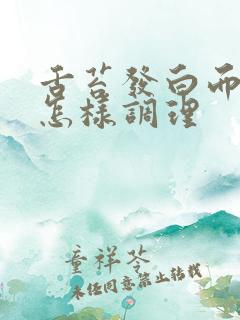 舌苔發白而
怎樣調理
童祥苓
未经同意禁止转载